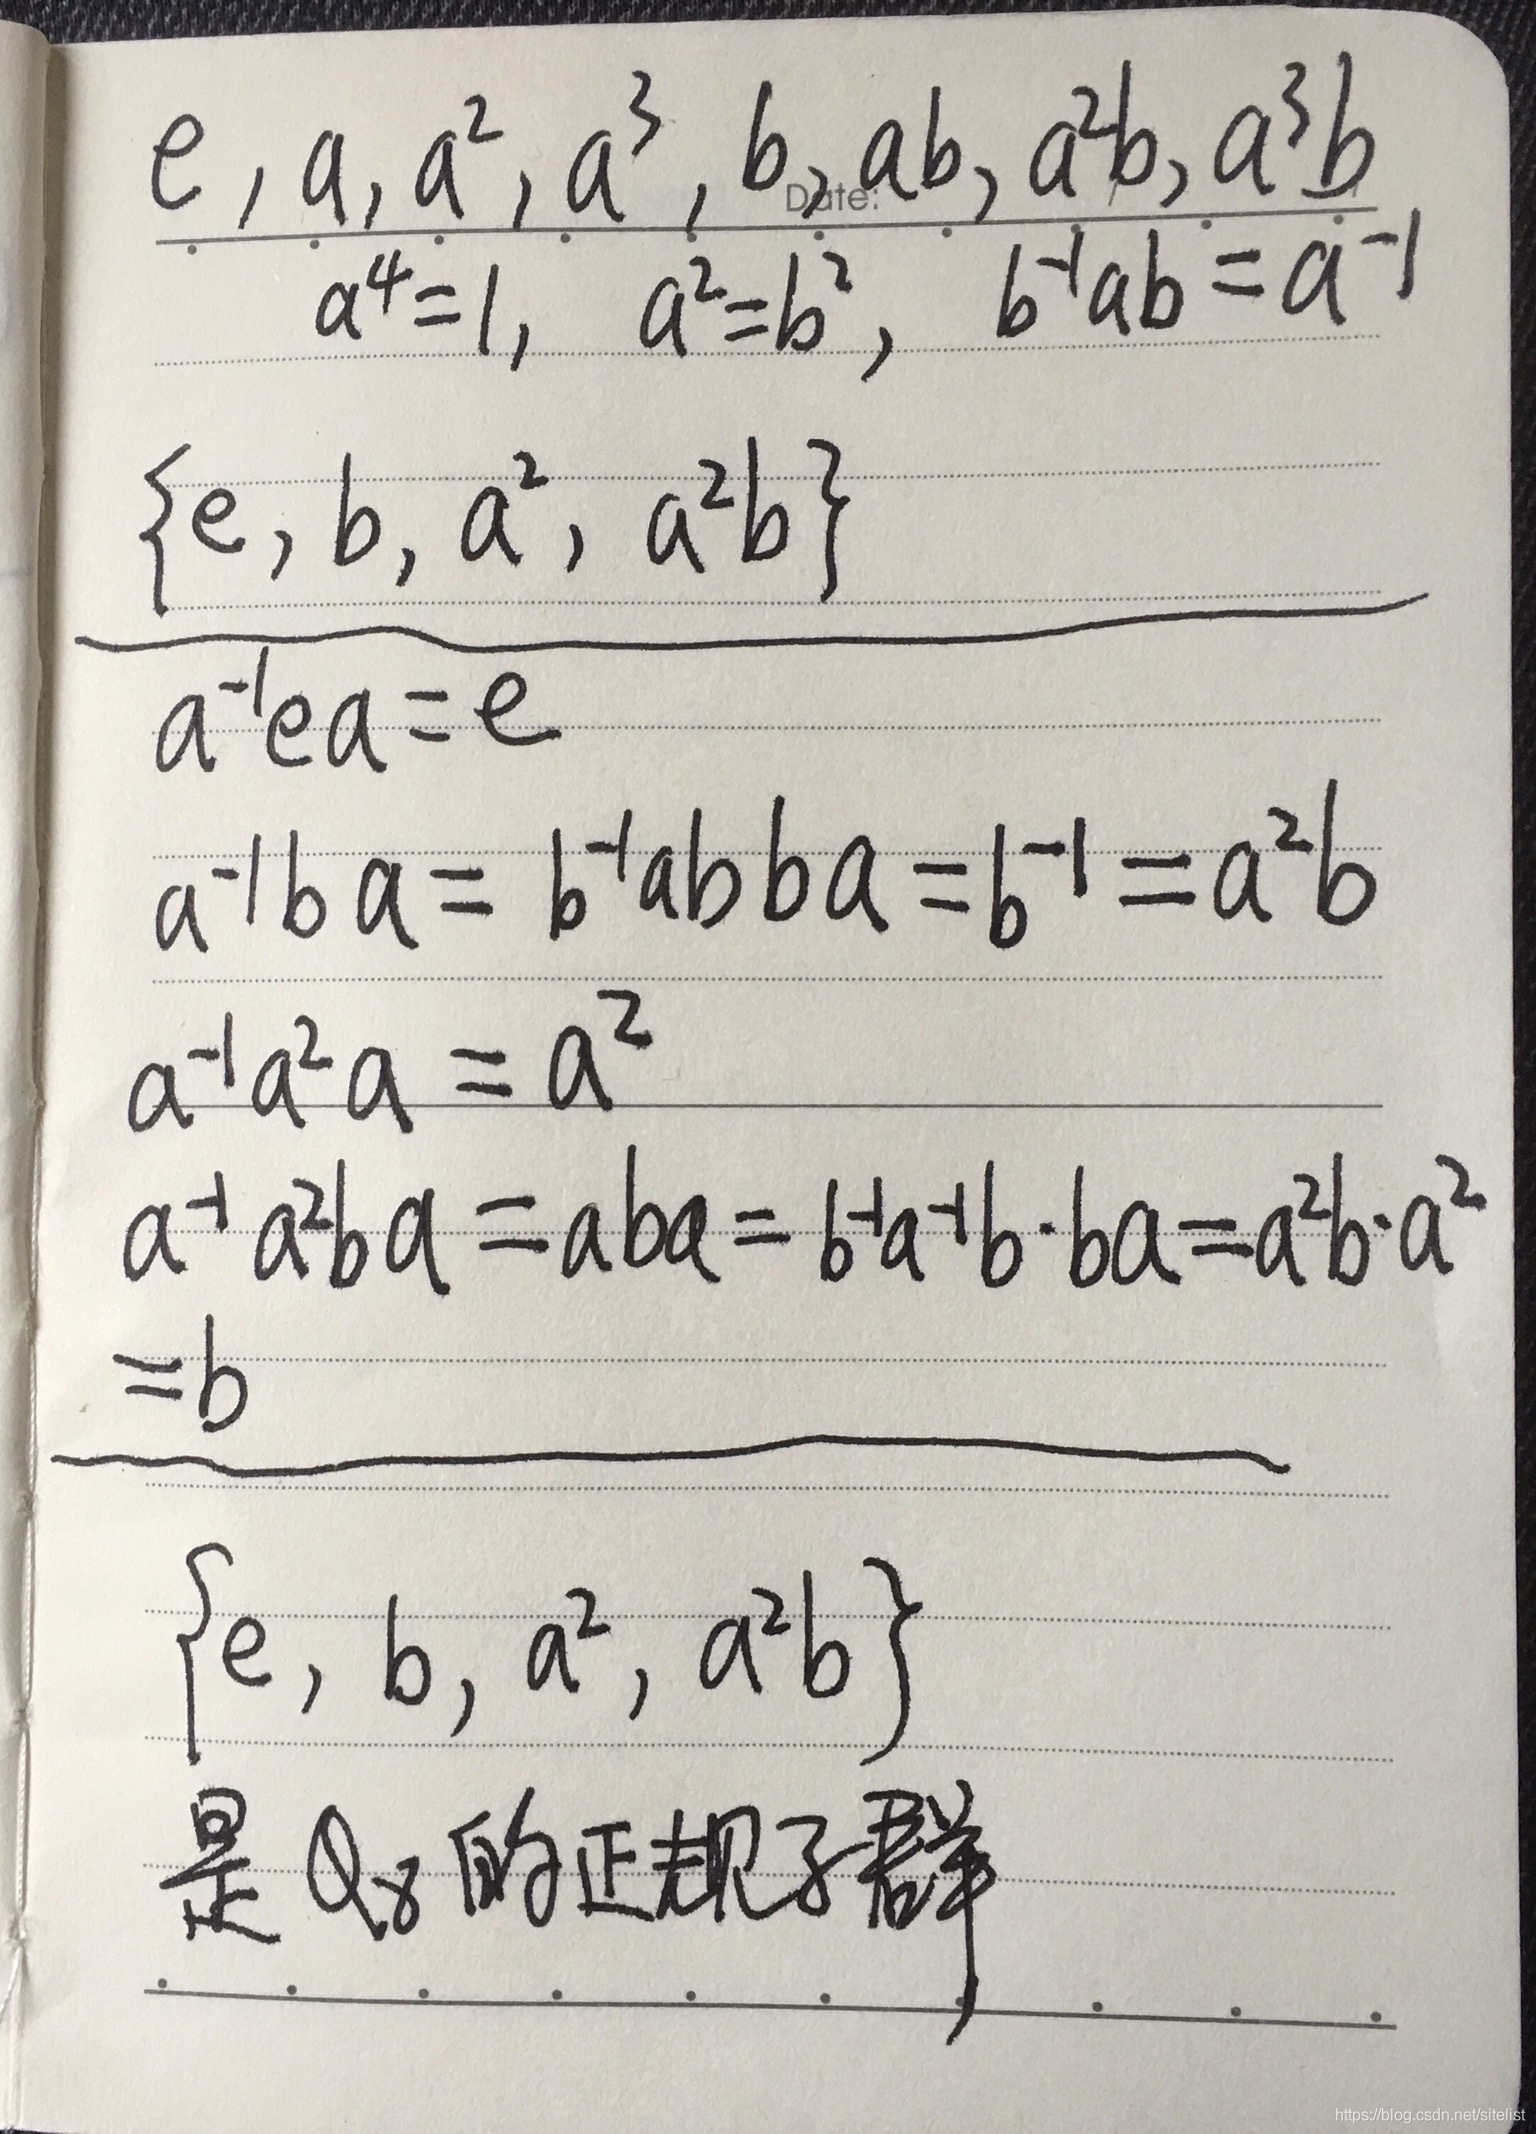 e, a, a², a³, b, ab, a²b, a³b
Date:
a⁴=1, a²=b², b⁻¹ab=a⁻¹
{e, b, a², a²b}
a⁻¹ea=e
a⁻¹ba=b⁻¹abba=b⁻¹=a²b
a⁻¹a²a=a²
a⁻¹a²ba=aba=b⁻¹a⁻¹b·ba=a²b·a²
=b
{e, b, a², a²b}
是Q₈的正规子群
https://blog.csdn.net/sitelist